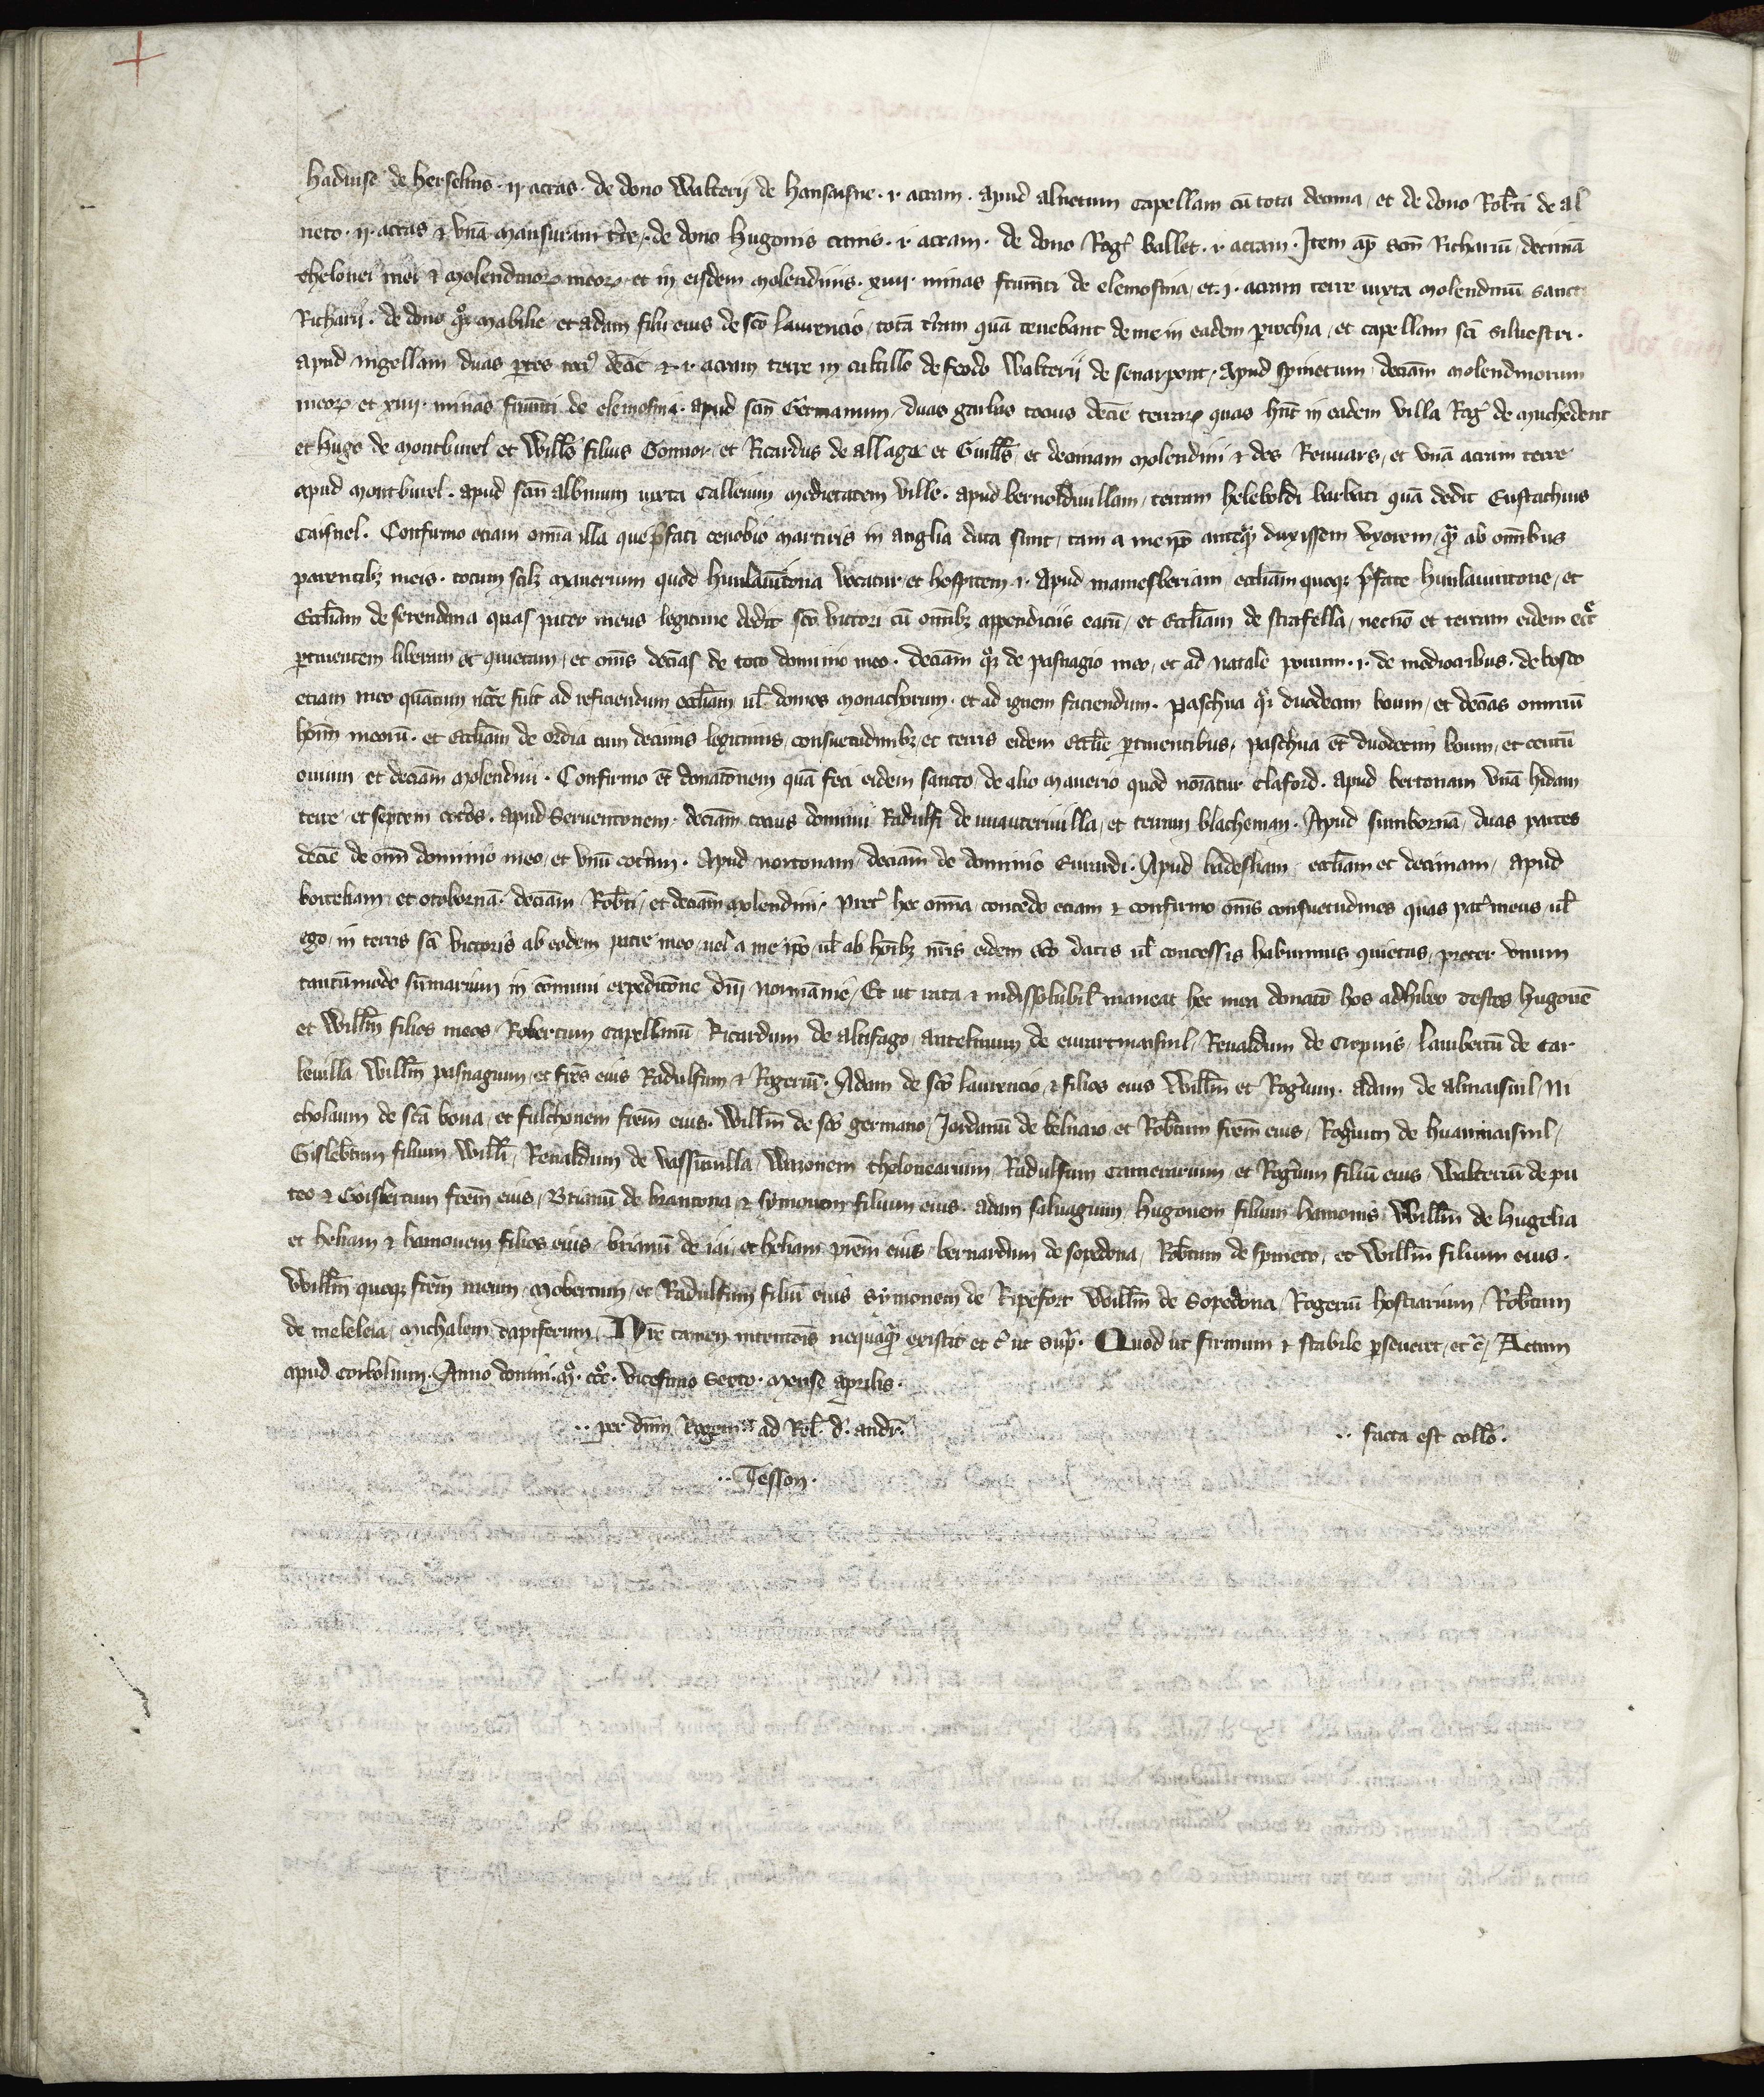 hadiuse de herselins· ij· acras· de dono Walterij de hansaisne· i· acram· apud alnetum capellam cū tota decima, et de dono Rob̄ti de al
neto· ij· acras & vnā mansuram t̄re,· de dono hugonis crassi· i· acram· de dono Rog̾ ballet· i· acram· Item ap̄ scm̄ Richariū decimā
thelonei mei & molendinoꝝ meoꝝ, et in eisdem molendinis· xiiij· minas frum̄ti de elemosina, et· i· acram terre iuxta molendinū sancti
Richarij· de dono qͦꝫ mabilie et adam filii eius de sco̅ laurencio, totā t̄ram quā tenebant de me in eadem parrochia, et capellam sc̄i siluestri·
apud nigellam duas ꝑtes toci᷒ deci̅e & i· acram terre in cultillo de feodo Walterij de senarpont, Apud spinetum, deciam̄ molendinorum
meoꝝ et xiiij· minas frum̄ti de elemosina· apud scm̄ Germanum, duas garbas tocius deci̅e terraꝝ quas hn̄t in eadem villa Rog̾ de muchedent
et hugo de montburel et Will̄s filius Gonnor, et Ricardus de allagæ et Guill̄s, et decimam molendini & des Renuars, et vnā acram terre
apud montburel· apud scm̄ albinum iuxta Callenm medietatem ville· apud bernoldiuillam, terram heleboldi barbati quā dedit Eustachius
Caisnel· Confirmo etiam om̄ia illa que p̄fati cenobio martiris in anglia data sunt, tam a me ip̄o anteq̄ duxissem vxorem, q̄ ab om̄ibus
parentibꝫ meis· totum scilꝫ manerium quod hunlauintona vocatur et hospitem· i· Apud mamesberiam, eccl̄iam quoqꝫ p̄fate hunlauintone, et
Eccl̄iam de serendena quas pater meus legitime dedit sco̅ victori cū om̄ibꝫ appendiciis earū, et Eccl̄iam de strafella, necnō et terram eidem ecc̄e
ꝑtinentem liberam et quietam, et om̄s decias̄ de toto dominio meo· deciam̄ qͦꝫ de pasnagio meo, et ad natale porcum· i· de mediocribus· de bosco
etiam meo quātum nc̄cre fūit ad reficiendum eccl̄iam ul̄ domos monachorum· et ad ignem faciendum· Paschua qͦꝫ duodecim boum, et decias̄ omniū
hoīm meorū· et Eccl̄iam de ordia cum decimis legitimis, consuetudinibꝫ et terris eidem eccl̄ie ꝑtinentibus, paschua et̄ duodecim boum, et centū
ouium et deciam̄ molendini· Confirmo et̄ donatōnem quā feci eidem sancto, de alio manerio quod noīatur Claford· apud bertonam vnā hidam
terre et septem cot̄dos· apud Seruentonem· deciam̄ tocius dominii Radulfi de muauteriuilla, et terram blacheman· Apud sumbornā, duas partes
deci̅e de om̄i dominio meo, et vnū cot̄lm· Apud nortonam, deciam̄ de dominio Eurardi· Apud badesham, eccl̄iam et decimam, apud
bortebam et otobornā· deciam̄ Rob̄ti, et deciam̄ molendini· Pret̾ hec om̄ia, concedo etiam & confirmo om̄s consuetudines quas pat̾ meus ul̄
ego, in terris sc̄i victoris ab eodem patre meo, uel a me ip̄o ul̄ ab ho̅ibꝫ n̄ris eidem sco̅ datis ul̄ concessis habuimus quietas, preter vnum
tantūmodo sūmarium in cōmuni expeditōne dn̄i normānie, Et ut rata & indissolubil̄ maneat hec mea donatō hos adhibeo testes, hugonē
et Will̄m filios meos, Robertum Capellanū Ricardum de altifago, antelmum de eurartmaisnil, Renaldum de Cropuis, lambertū de Car
leuilla Will̄m pasnagium, et fr̄es eius Radulfum & Rogerium· Adam de sco̅ laurencio, & filios eius Will̄m et Rog̾um· adam de almaisnil, Ni
cholaum de sca̅ bona, et fulchonem fr̄em eius· Will̄m de sco̅ germano, Jordanū de belnaio et Rob̄tum fr̄em eius, Rog̾ium de huanmaisnil,
Gislebtum filium Will̄i, Renaldum de vassūuilla, Wazonem thelonearium, Radulfum Camerarium, et Rog̾um filiū eius Walterū de pu
teo & Goisb̄ertum fr̄em eius, Brianū de brantona & symonem filium eius· adam saluagium, hugonem filium hamonis Will̄m de hugelia
et heliam & hamonem filios eius, brianū de iai, et heliam pr̄em eius, bernardum de sopedona, Rob̄tum de spineto, et Will̄m filium eius·
Will̄m quoqꝫ fr̄em meum, mobertum, et Radulfum filiū eius Symonem de Ripefort Will̄m de Sopedona Rogeriū hostiarium, Rob̄tum
de meleleia, michalem dapiferum, N̄re tamen intentōis nequaq̄ existit et c̾ ut sup̄· Quod ut firmum & stabile ꝑseueret, et c̾, Actum
apud Corbolium· Anno domini· mͦ· cccͦ· vicesimo sexto· mense aprilis·
·· per dn̄m Regem ad Rel̄· d̾· andr̄·
·· facta est coll̄o·
·· Tesson·